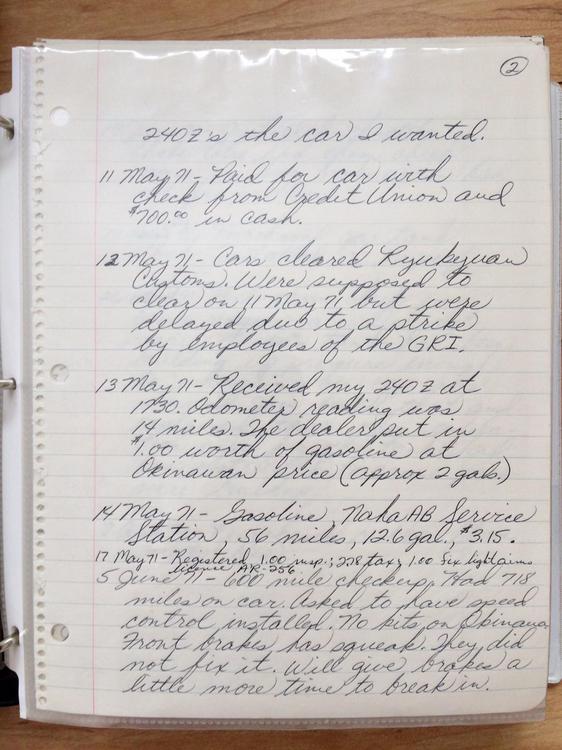 2
240Z's the car I wanted.
11 May 71 - Paid for car with
check from Credit Union and
$700.00 in cash.
12 May 71 - Cars cleared Ryukyuan
Customs. Were supposed to
clear on 11 May 71 but were
delayed due to a strike
by employees of the GRI.
13 May 71 - Received my 240Z at
1730. Odometer reading was
14 miles. The dealer put in
$1.00 worth of gasoline at
Okinawan price (approx 2 gals.)
14 May 71 - Gasoline, Naha AB Service
Station, 56 miles, 12.6 gal., $3.15.
17 May 71 - Registered 1.00 insp.; 2.78 tax; 1.00 fix light aims
License AR-256
5 June 71 - 600 mile checkup. Had 718
miles on car. Asked to have speed
control installed. No kits on Okinawa
Front brakes has squeak. They did
not fix it. Will give brakes a
little more time to break in.